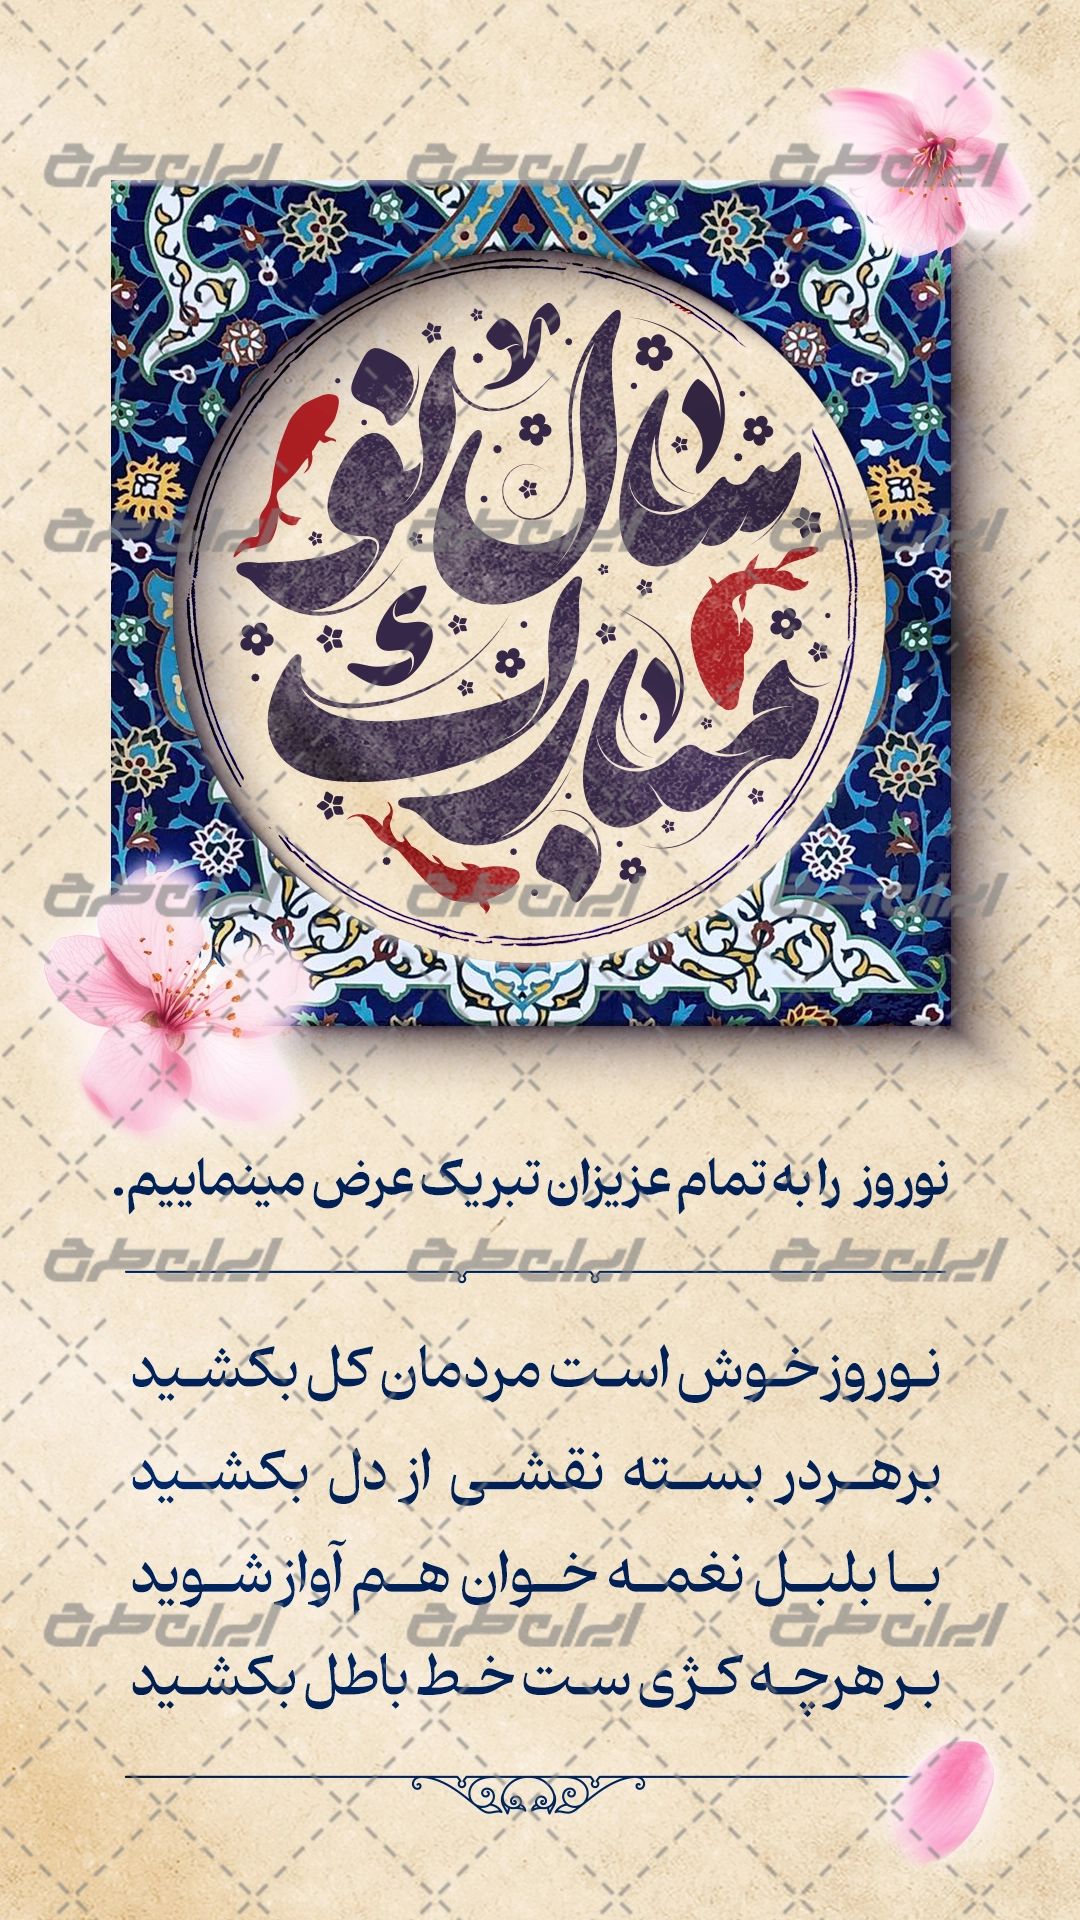 سال نو
مبارک
نوروز را به تمام عزیزان تبریک عرض مینماییم.
نوروز خوش است مردمان کل بکشید
بر هر در بسته نقشی از دل بکشید
با بلبل نغمه خوان هم آواز شوید
بر هرچه کژی ست خط باطل بکشید
ایران طرح